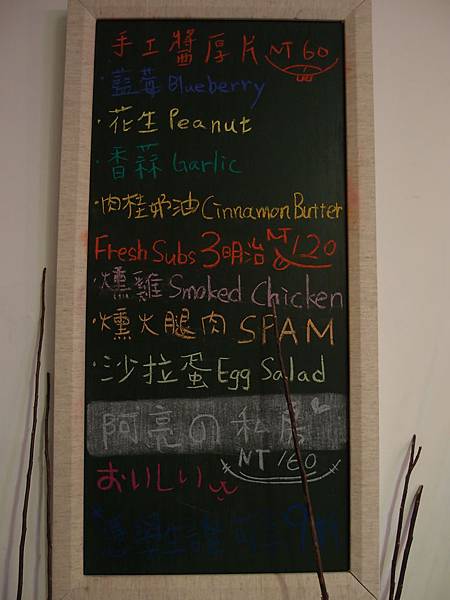 手工醬厚片 NT 60
·藍莓 Blueberry
·花生 Peanut
·香蒜 Garlic
·肉桂奶油 Cinnamon Butter
Fresh Subs 3明治 NT 120
·燻雞 Smoked Chicken
·燻火腿肉 SPAM
·沙拉蛋 Egg Salad
阿亮の私房
NT 160
おいしい